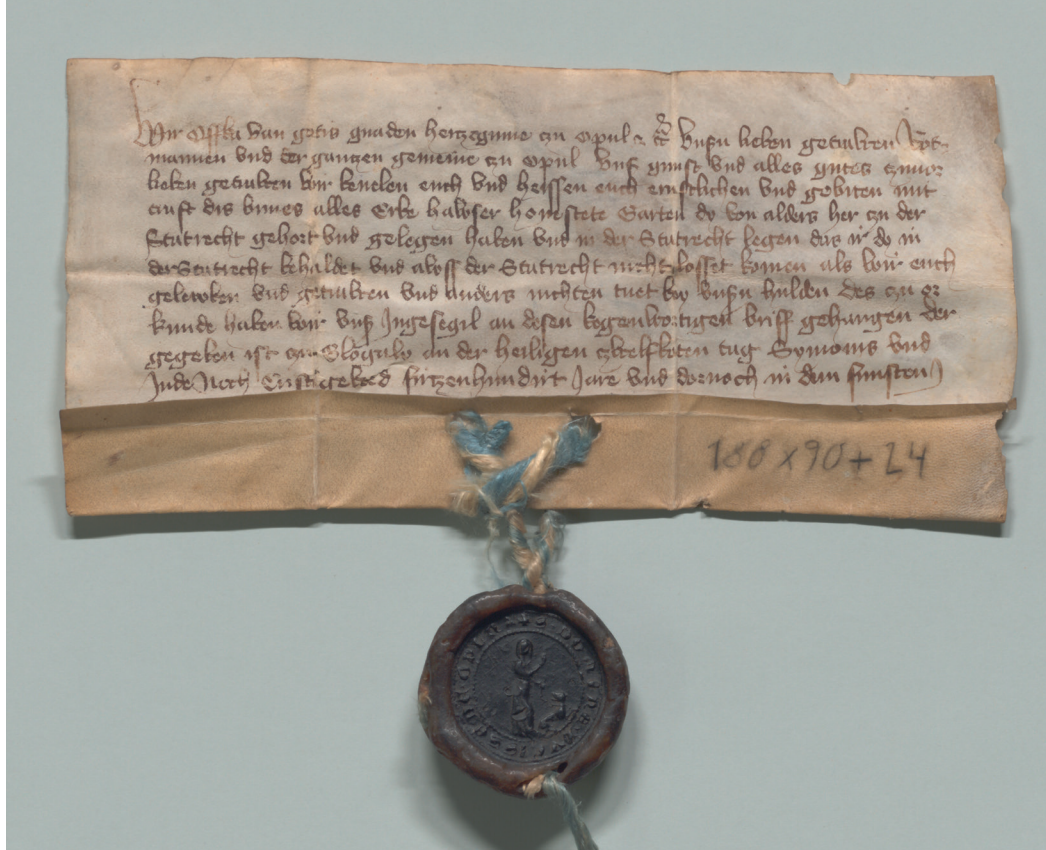 Wir Offka van gotis gnaden hertzoginne czu Opul &c Unsn lieben getruwen Rot
mannen vnd der gantzen gemeine czu Opul Uns gunst vnd alles gutes czuuor
lieben getruwen wir beuelen euch vnd heissen euch ernstlichen vnd gebiten mit
craft dis briues alles Erbe hawser houestete Garten do von alders her czu der
Statrecht gehort vnd gelegen haben vnd in der Statrecht legen das ir do in
der Statrecht behaldet vnd awss der Statrecht nicht losset komen als wir euch
gelewben vnd getruwen vnd anders nichten tuet bey vnsn hulden Des czu or
kunde haben wir vnsr Ingesegil an desen kegenwortigen briff gehangen Der
gegeben ist czu Glogaw an der heiligen czwelfboten tag Symonis vnd
Jude Noch Cristi geburd firtzenhundirt Jare vnd dornoch in dem funften J
180 x 90 + 24